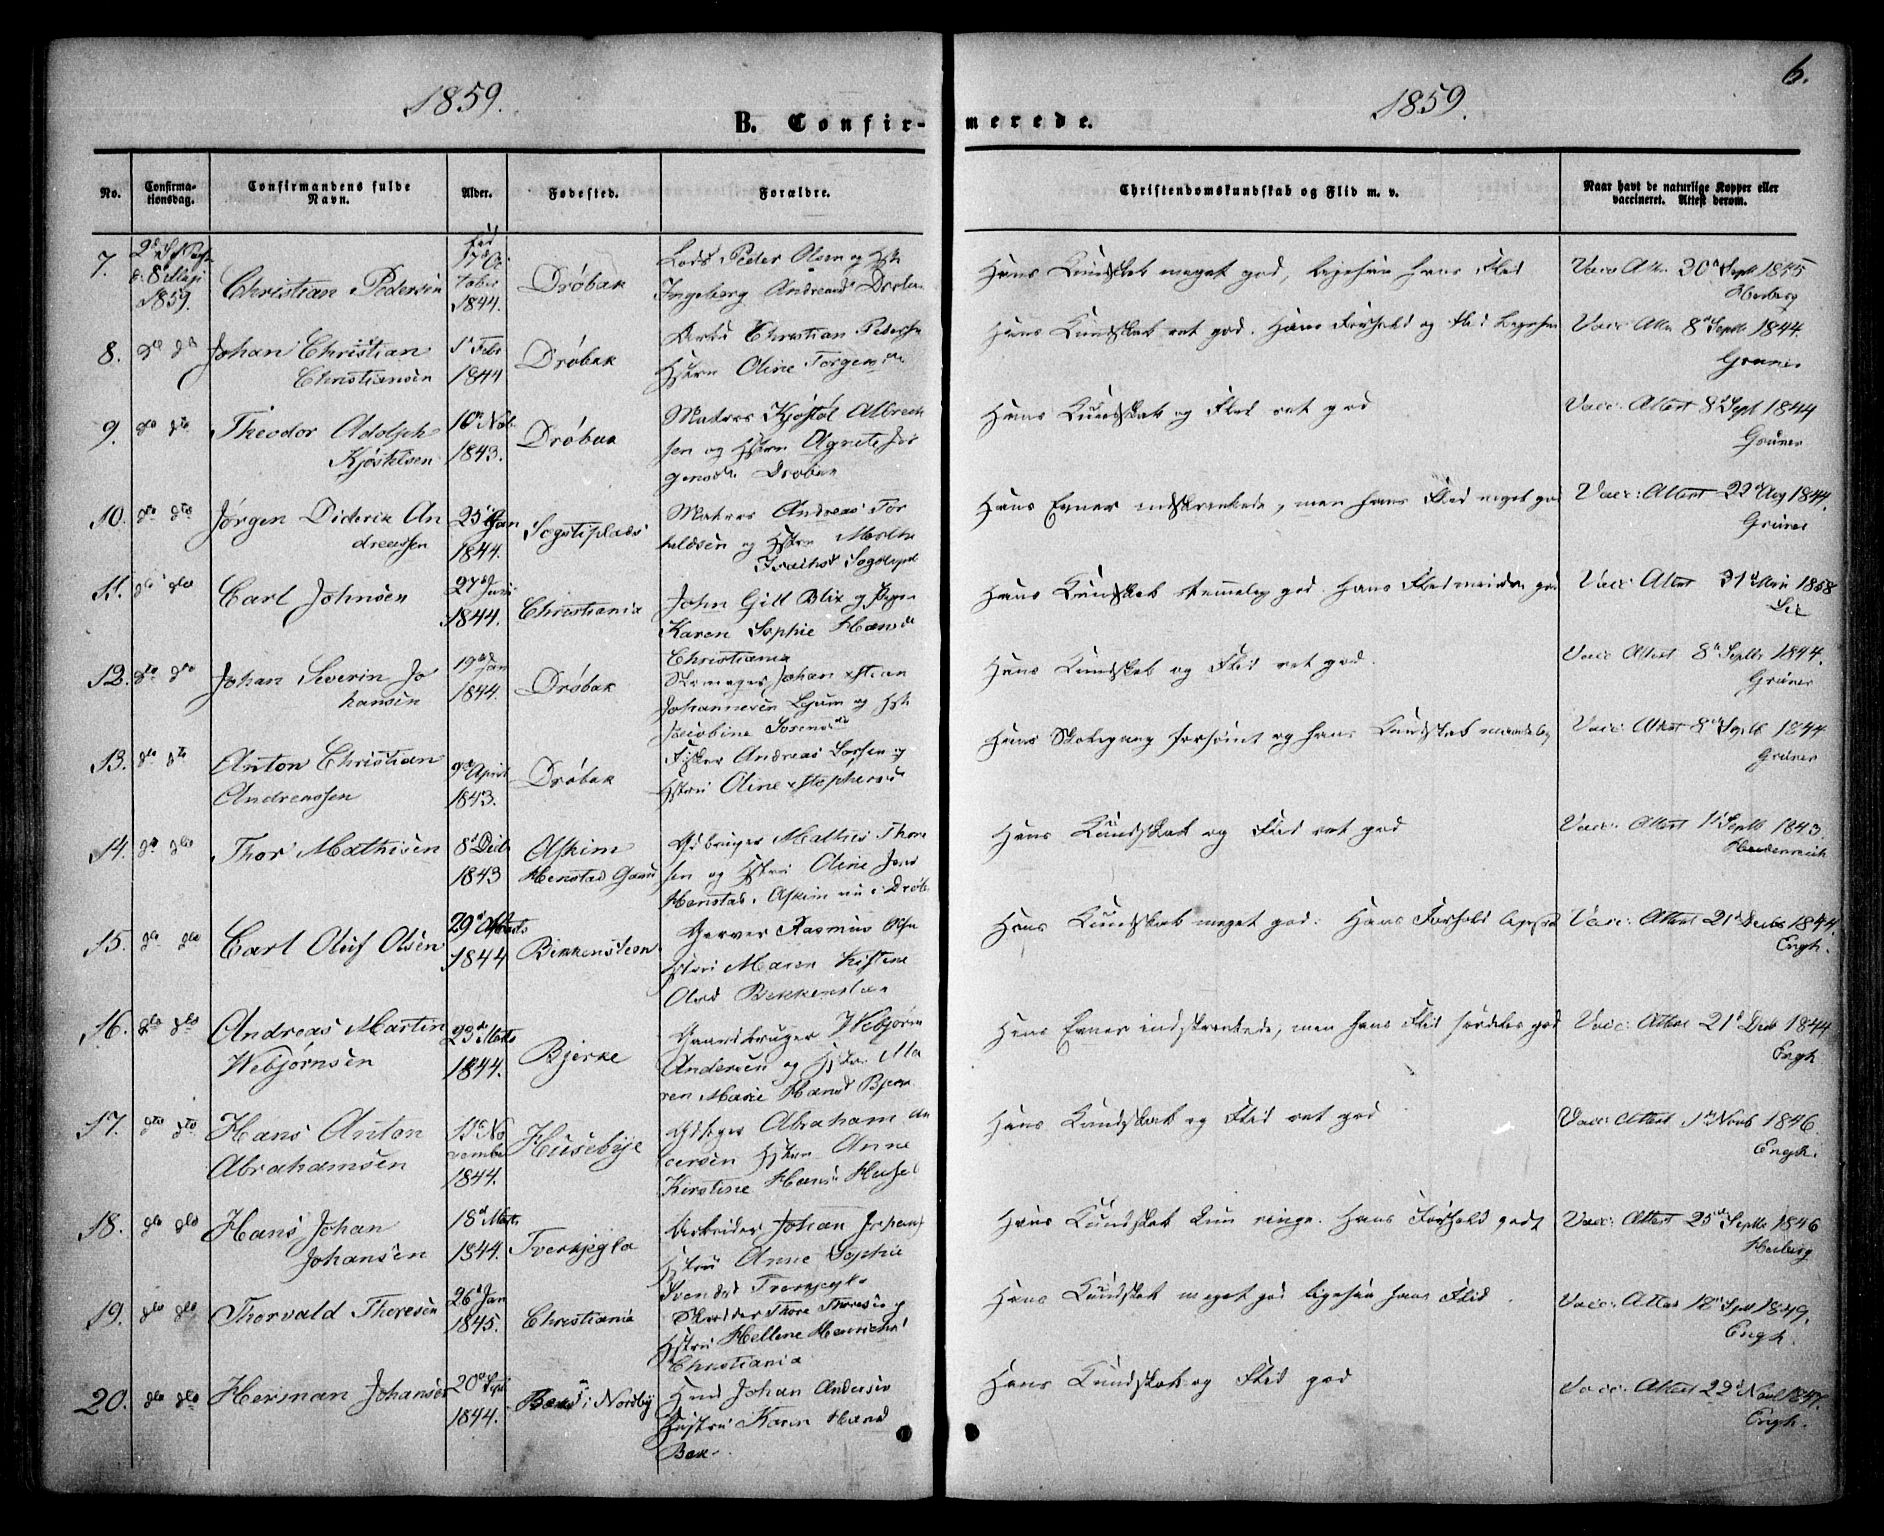 1859.
1859.
6.
B. Confir- merede.
No.
Confirma-
tionsdag.
Confirmandens fulde
Navn.
Alder.
Fødested.
Forældre.
Christendomskundskab og Flid m. v.
Naar havt de naturlige Kopper eller
vaccineret. Attest derom.
7.
8 Maji
1859.
Christian Pedersen
fød
17de Oc
tober
1844.
Drøbak
Lods Peder Olsen og Hstr
Ingeborg Andreasd
Hans Kundskab meget god, ligesaa hans Flid
Vacc Att 30d Septb 1845
Herberg
8. do do
Johan Christian
Christiansen
1d Febr
1844
Drøbak
Christian Peders
Hstru Oline Torgersd
Hans Kundskab ret god. Hans Forhold og Flid ligesaa
Vacc: Att 8d Septb 1844.
Gruner
9. do do
Theodor Adolph
Kjøstelsen
10d Nov
1843.
Drøbak
Matros Kjøstol Albrech
sen og Hstru Agnete Jør
gensdtr Drøbak
Hans Kundskab og Flid ret god
Vacc: Attest 8d Sept 1844
Gruner
10. dto dto
Jørgen Diderik An
dreassen
25d Jan
1844.
Sogstiplads
Matros Andreas Tor
kildsen og Hstru
Hans Evner indskrænkede, men hans Flid meget god
Vacc: Attest 22d Aug 1844.
Gruner
11. do do
Carl Johnsen
27d
1844.
Christiania
John Gill Blix og Pigen
Karen Sophie Hansd
Christiania
Hans Kundskab temmelig god Hans Flid mindre god
Vacc: Attest 31d 1858
12. dto dto
Johan Severin Jo
hansen
19d Jan
1844.
Drøbak
Skomager Johan Stian
Johannesen og Hstr
Jacobine Sørensd
Hans Kundskab og Flid ret god.
Vacc Attest 8d Septb 1844.
Gruner
13. do do
Anton Christian
Andreassen
9d April
1843.
Drøbak
Fisker Andreas Larsen og
Hstru Oline Stephensd
Hans Skolegang forsømt og hans Kundskab maadelig
Vacc: Attest 8d Septb 1844
Gruner
14. do do
Thor Mathisen
8d Decb
1843
Askim
Henstad Gaard
Gdbruger Mathis Thore
sen og Hstru Oline Jensd
Henstad, Askim nu i Drøb.
Hans Kundskab og Flid ret god
Vacc: Attest 1d Septb 1843.
Heidenreich
15. do do
Carl Oluf Olsen
29d Marts
1844
Bekkensteen
Garver Rasmus Olsen
Hstru Maren Kistine
Olsd Bekkensteen
Hans Kundskab meget god. Hans Forhold ligesaa
Vacc: Attest 21d Decbr 1844.
Engh.
16. do do
Andreas Martin
Webjørnsen
23d Marts
1844.
Bjerke
Gaardbruger Webjørn
Andersen og Hstru Ma
ren Marie Hansd Bjerke
Hans Evner indskrænkede, men hans Flid særdeles god
Vacc: Attest 21d Decb 1844
Engh
17. dto dto
Hans Anton
Abrahamsen
11d No
vember
1844.
Husebye
Gdeier Abraham An
dersen Hstru Anne
Kirstine Hansd Huseb
Hans Kundskab og Flid ret god
Vacc: Attest 1d Novb 1846.
Engh.
18. do do
Hans Johan
Johansen
18d Marts
1844.
Tverkjegla
Arbeider Johan Johans
Hstru Anne Sophie
Svensd Tverkjegla
Hans Kundskab kun ringe. Hans Forhold godt
Vacc: Attest 25d Septb 1846
Herberg
19. do do
Thorvald Thoresen
26d Jan
1845.
Christiania
Skrædder Thore Thoresen og
Hstru Hellene Henrichsd
Christiania
Hans Kundskab meget god ligesaa hans Flid.
Vacc: Attest 18d Septb 1849.
Engh.
20. do do
Herman Johansen
20d Sept
1844.
i Nordby
Johan Andersen
Hustru Karen Hansd
Bæk.
Hans Kundskab og Flid god
Vacc: Attest 22d 1847.
Engh.